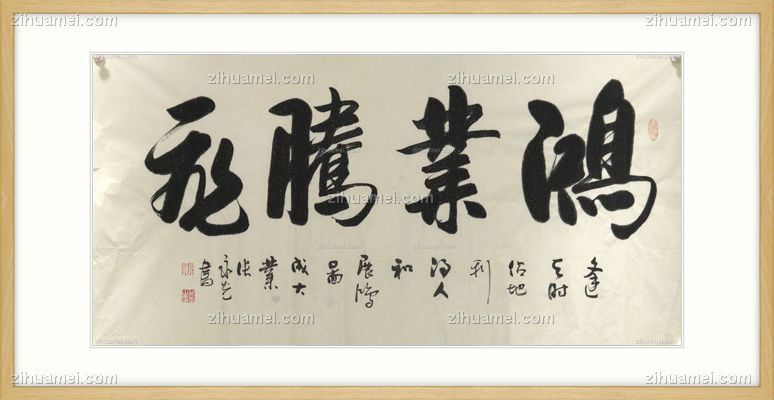 zihuamei.com
zihuamei.com
zihuamei.com
zihuamei.com
zihuamei.com
鴻業騰飛
zihuamei.com
逢天时佔地利得人和展鴻图成大業
書
zihuamei.com
zihuamei.com
zihuamei.com
zihuamei.com
zihuamei.com